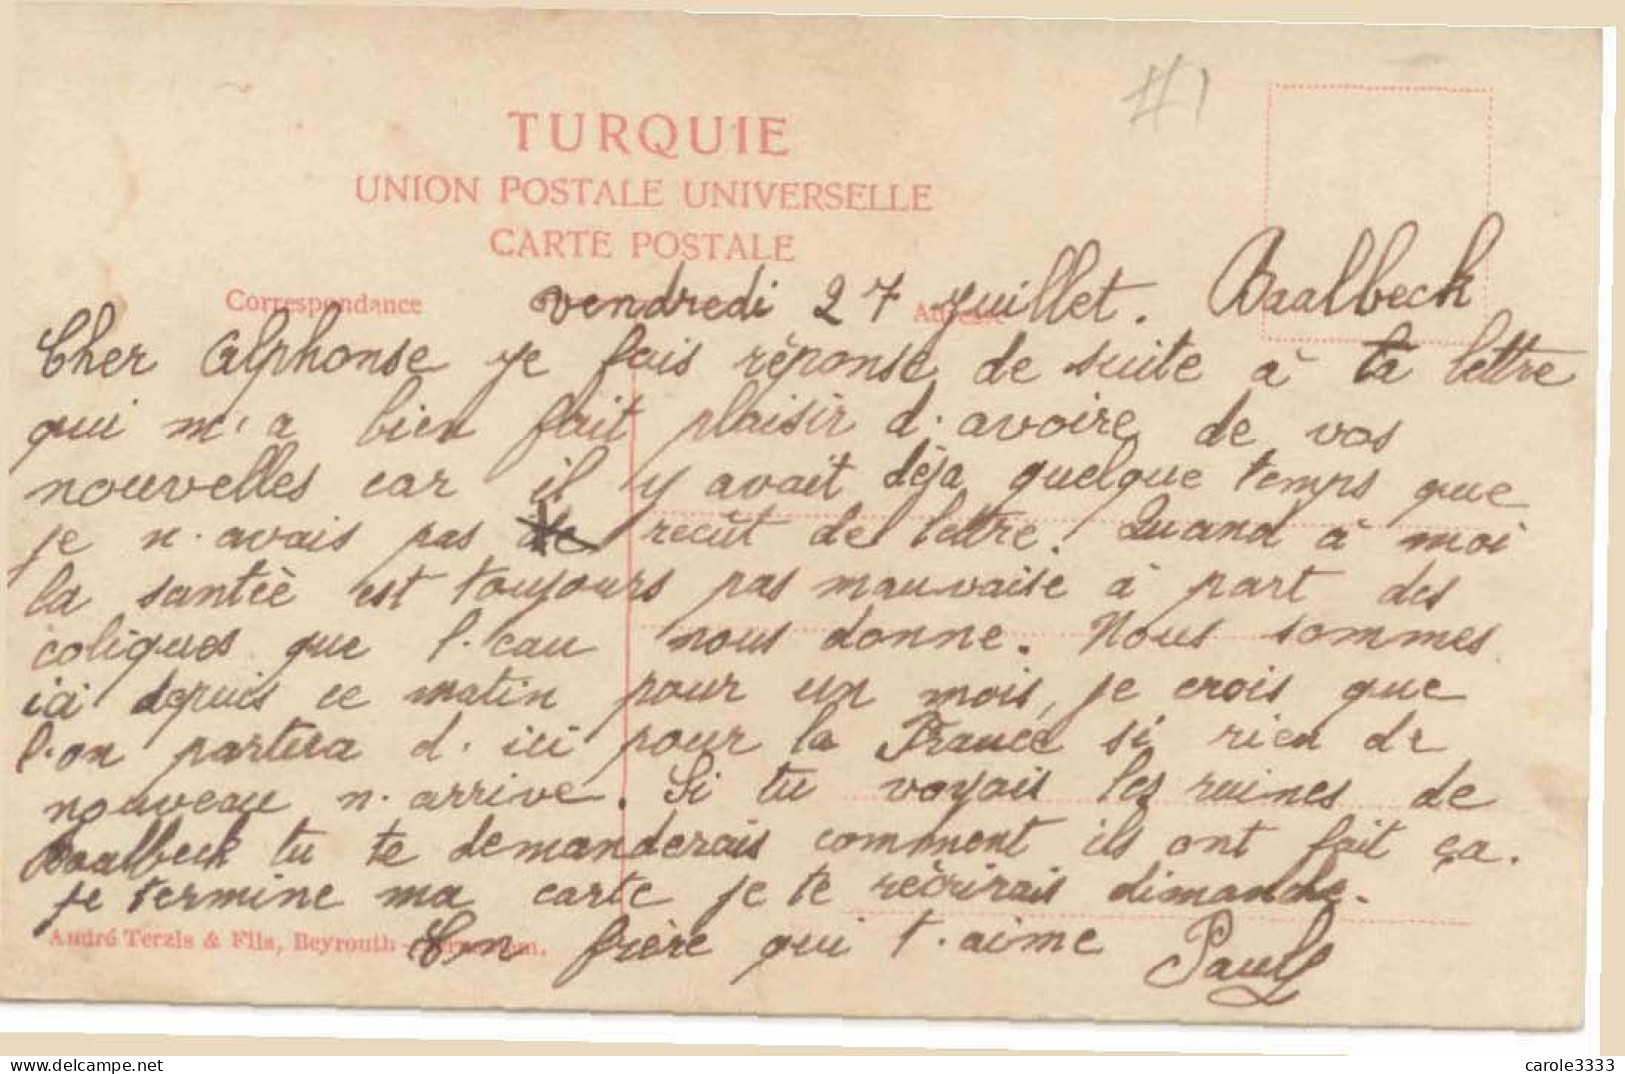 #1
TURQUIE
UNION POSTALE UNIVERSELLE
CARTE POSTALE
Correspondance
Adresse
vendredi 27 juillet. Baalbeck
Cher Alphonse je fais réponse de suite à ta lettre
qui m'a bien fait plaisir d'avoire de vos
nouvelles car il y avait déja quelque temps que
je n'avais pas recût de lettre. Quand à moi
la santèè est toujours pas mauvaise à part des
coliques que l'eau nous donne. Nous sommes
ici depuis ce matin pour un mois, je crois que
l'on partira d'ici pour la France si rien de
nouveau n'arrive. Si tu voyais les ruines de
Baalbeck tu te demanderais comment ils ont fait ça.
je termine ma carte je te réecrirais dimanche.
André Terzis & Fils, Beyrouth
Ton frère qui t'aime Paul
delcampe.net
carole3333